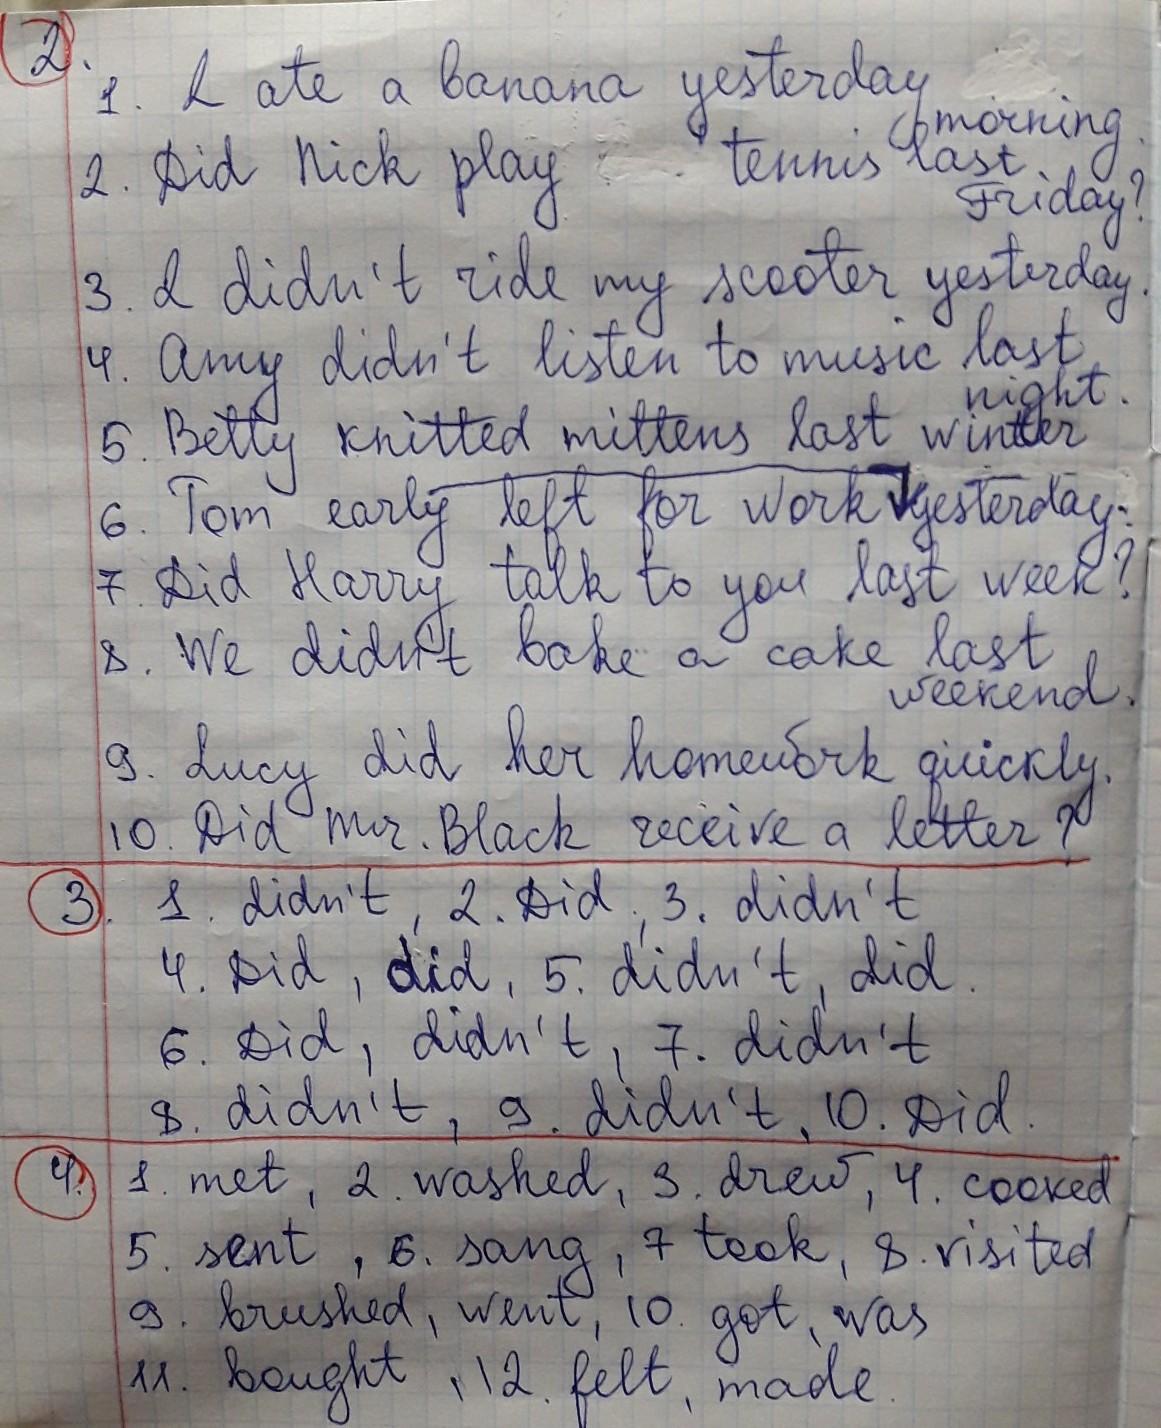 2.
1. I ate a banana yesterday
morning.
2. Did Nick play tennis last
Friday?
3. I didn't ride my scooter yesterday.
4. Amy didn't listen to music last
night.
5. Betty knitted mittens last winter
6. Tom early left for work yesterday.
7. Did Harry talk to you last week?
8. We didn't bake a cake last
weekend.
9. Lucy did her homework quickly.
10. Did Mr. Black receive a letter?
3. 1. didn't, 2. Did, 3. didn't
4. Did, did, 5. didn't, did.
6. Did, didn't, 7. didn't
8. didn't, 9. didn't, 10. Did.
4. 1. met, 2. washed, 3. drew, 4. cooked
5. sent, 6. sang, 7 took, 8. visited
9. brushed, went, 10. got, was
11. bought, 12. felt, made.